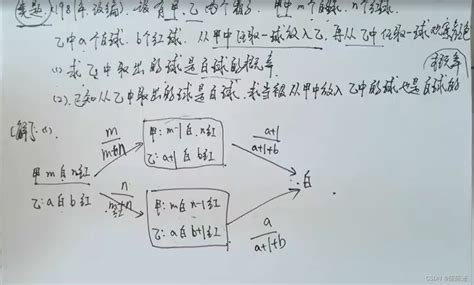 (真题)(1981年.改编). 设有甲.乙两个袋子. 甲中m个白球. n个红球.
乙中a个白球. b个红球. 从甲中任取一球放入乙, 再从乙中任取一球观察颜色
(1) 求乙中取出的球是白球的概率.
的概率
(2). 已知从乙中取出的球是白球. 求等级从甲中放入乙中的球也是白球的
[解]: (1).
m
m+n
甲: m-1白. n红
乙: a+1白 b红
a+1
a+1+b
甲 m白 n红
乙: a白 b红
n
m+n
∴白
甲: m白 n-1红
乙: a白 b+1红
a
a+1+b